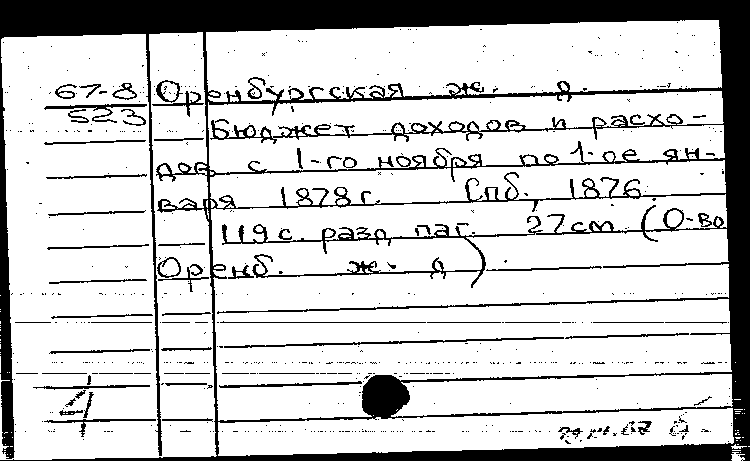 67-8 Оренбургская ж. д.
523 Бюджет доходов и расхо-
дов с 1-го ноября по 1-ое ян-
варя 1878 г. Спб., 1876.
119 с. разд. паг. 27 cm (О-во
Оренб. ж. д.)
4